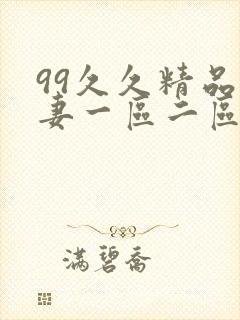 99久久精品
妻一區二區
滿碧喬